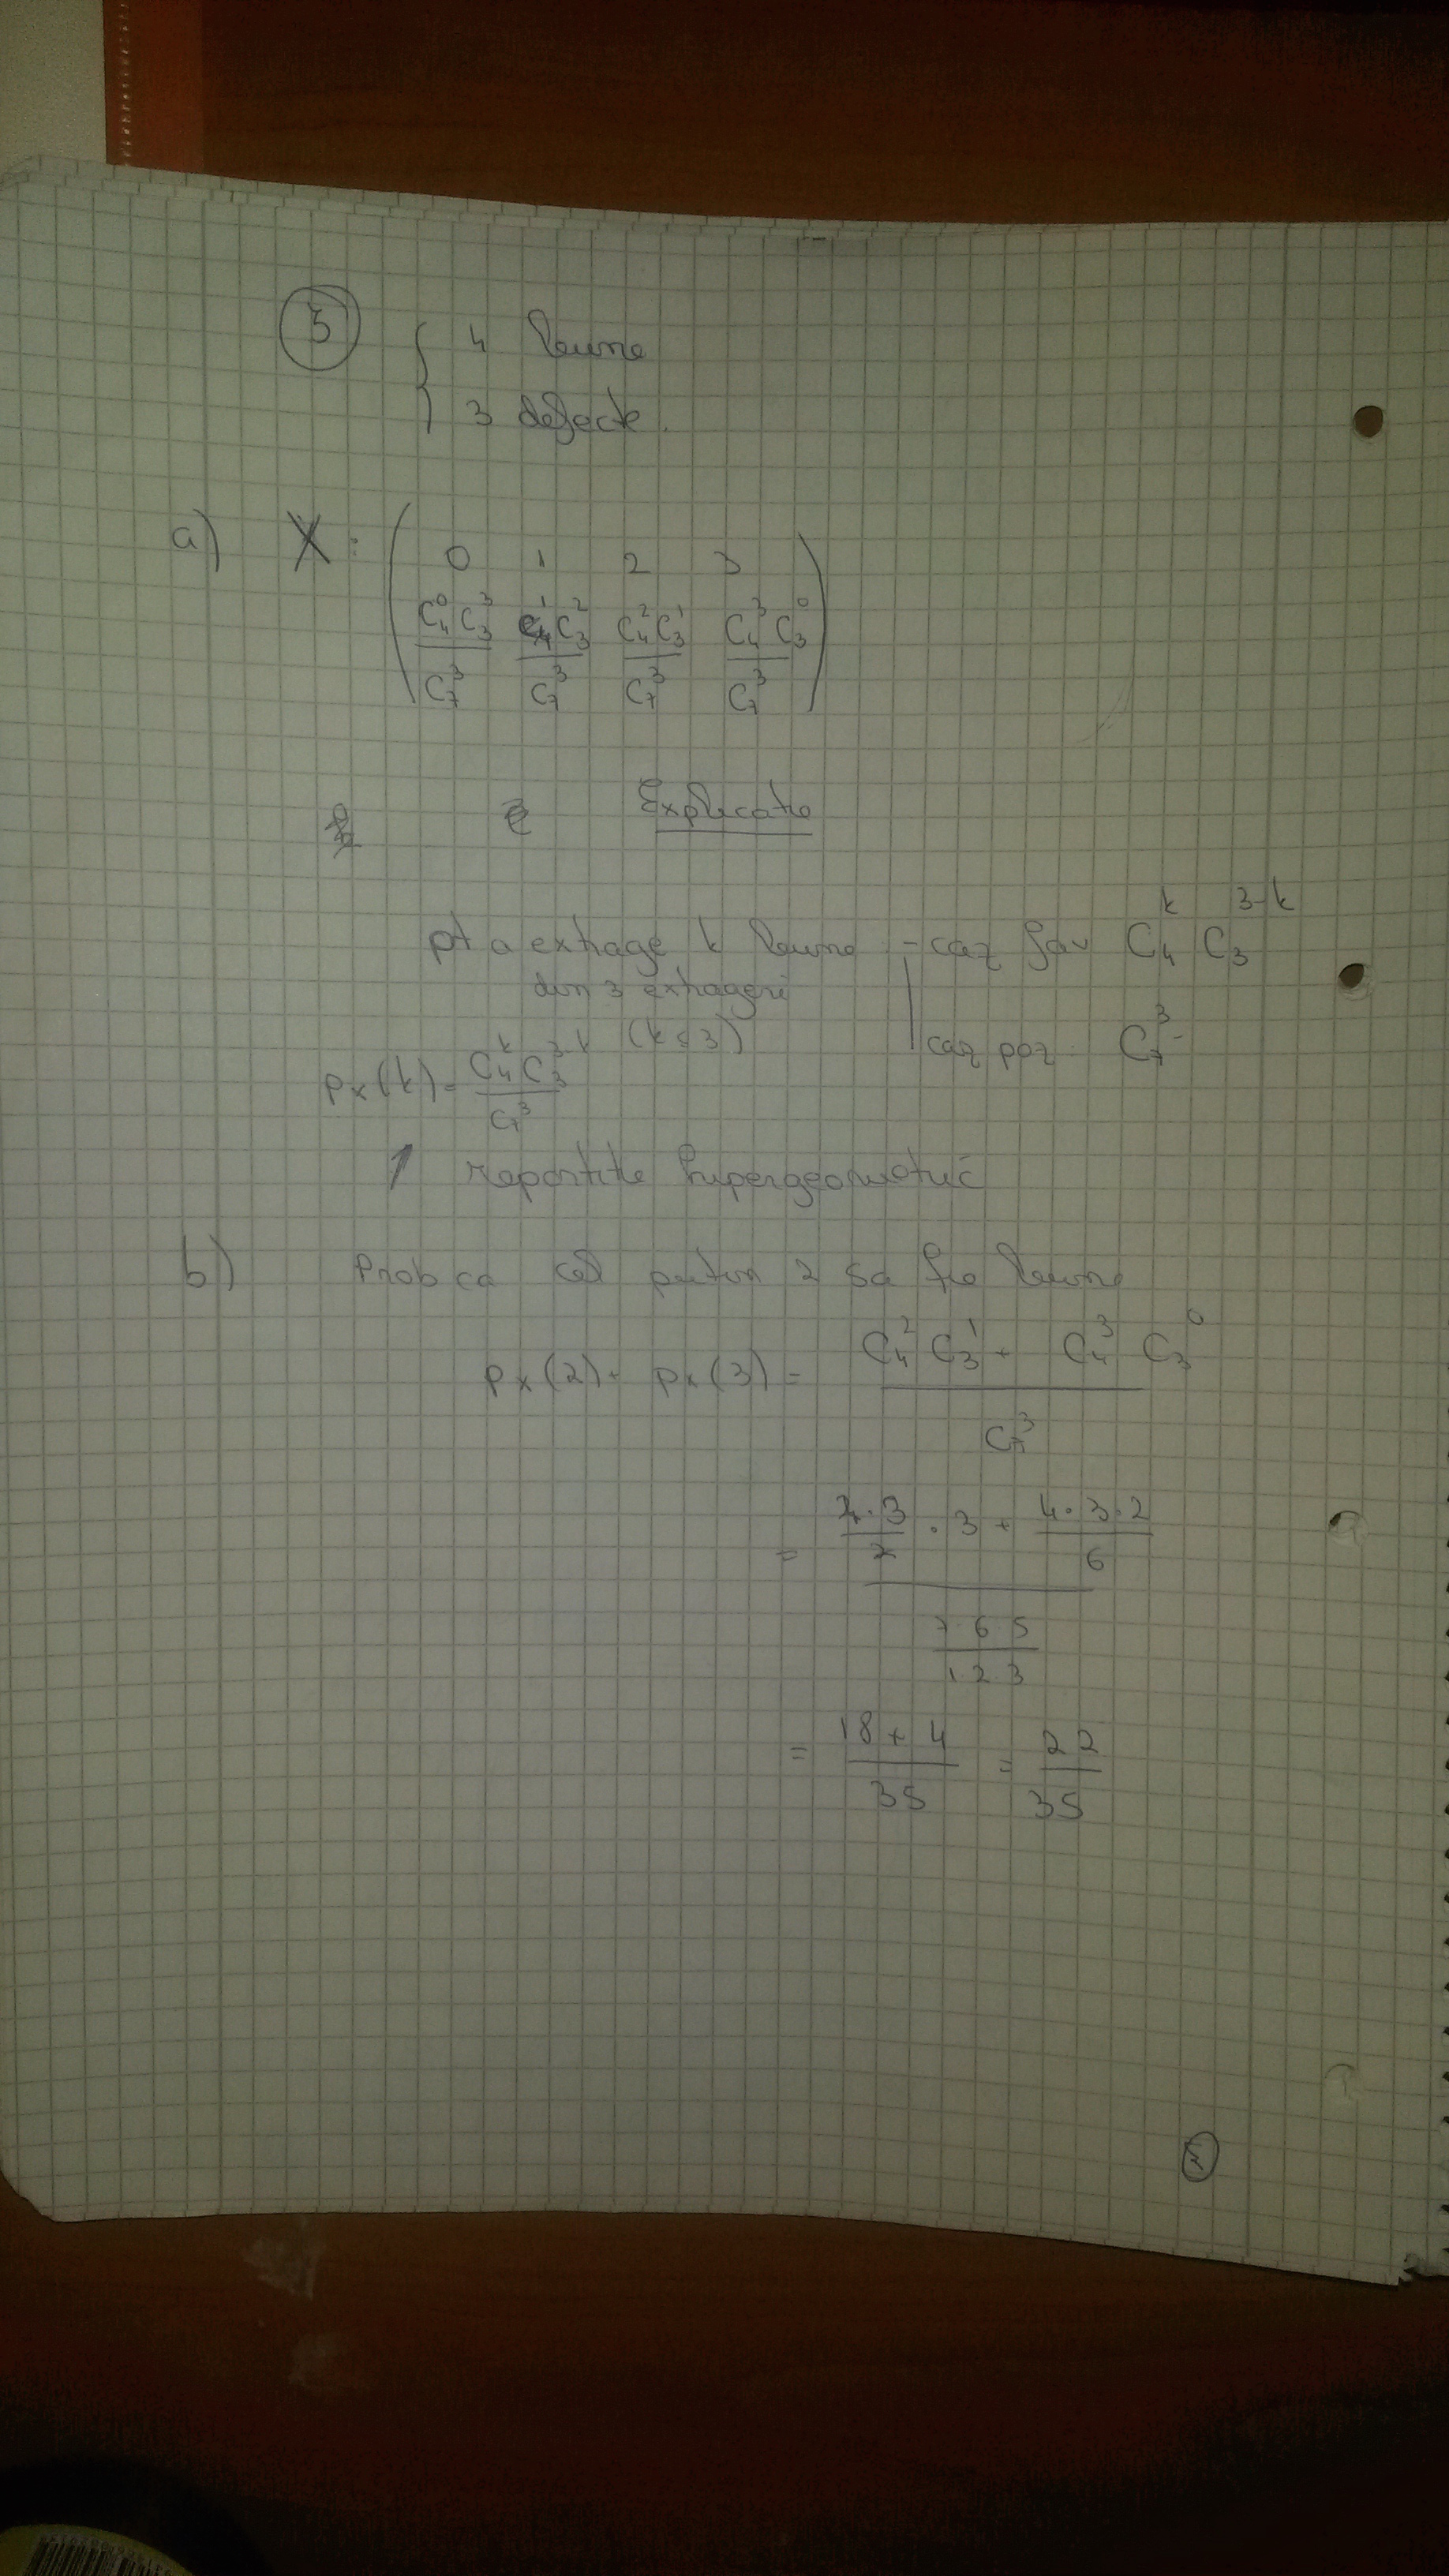 3
4 bune
3 defecte.
a) X: ( 0 1 2 3
C₄⁰C₃³/C₇³ C₄¹C₃²/C₇³ C₄²C₃¹/C₇³ C₄³C₃⁰/C₇³ )
Explicatie
pt a extrage k bune - caz fav C₄ᵏ C₃³⁻ᵏ
din 3 extrageri
(k≤3) caz poz. C₇³
pₓ(k) = C₄ᵏC₃³⁻ᵏ/C₇³
repartitie hipergeometric
b) Prob ca cel putin 2 sa fie bune
pₓ(2) + pₓ(3) = (C₄²C₃¹ + C₄³ C₃⁰)/C₇³
= (4·3/2 · 3 + 4·3·2/6)/(7·6·5/1·2·3)
= (18 + 4)/35 = 22/35